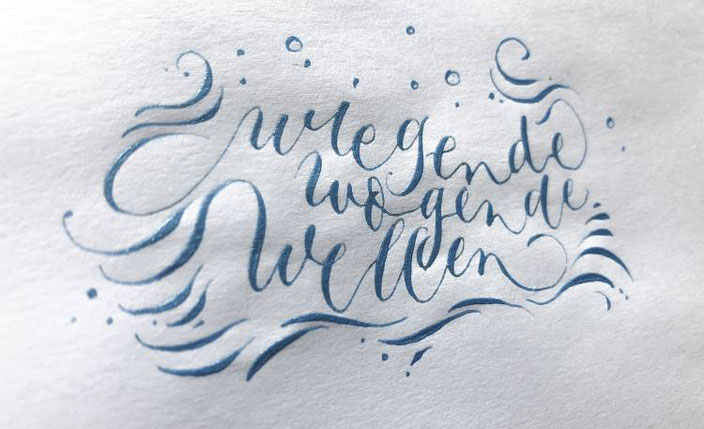 wiegende
wogende
wellen